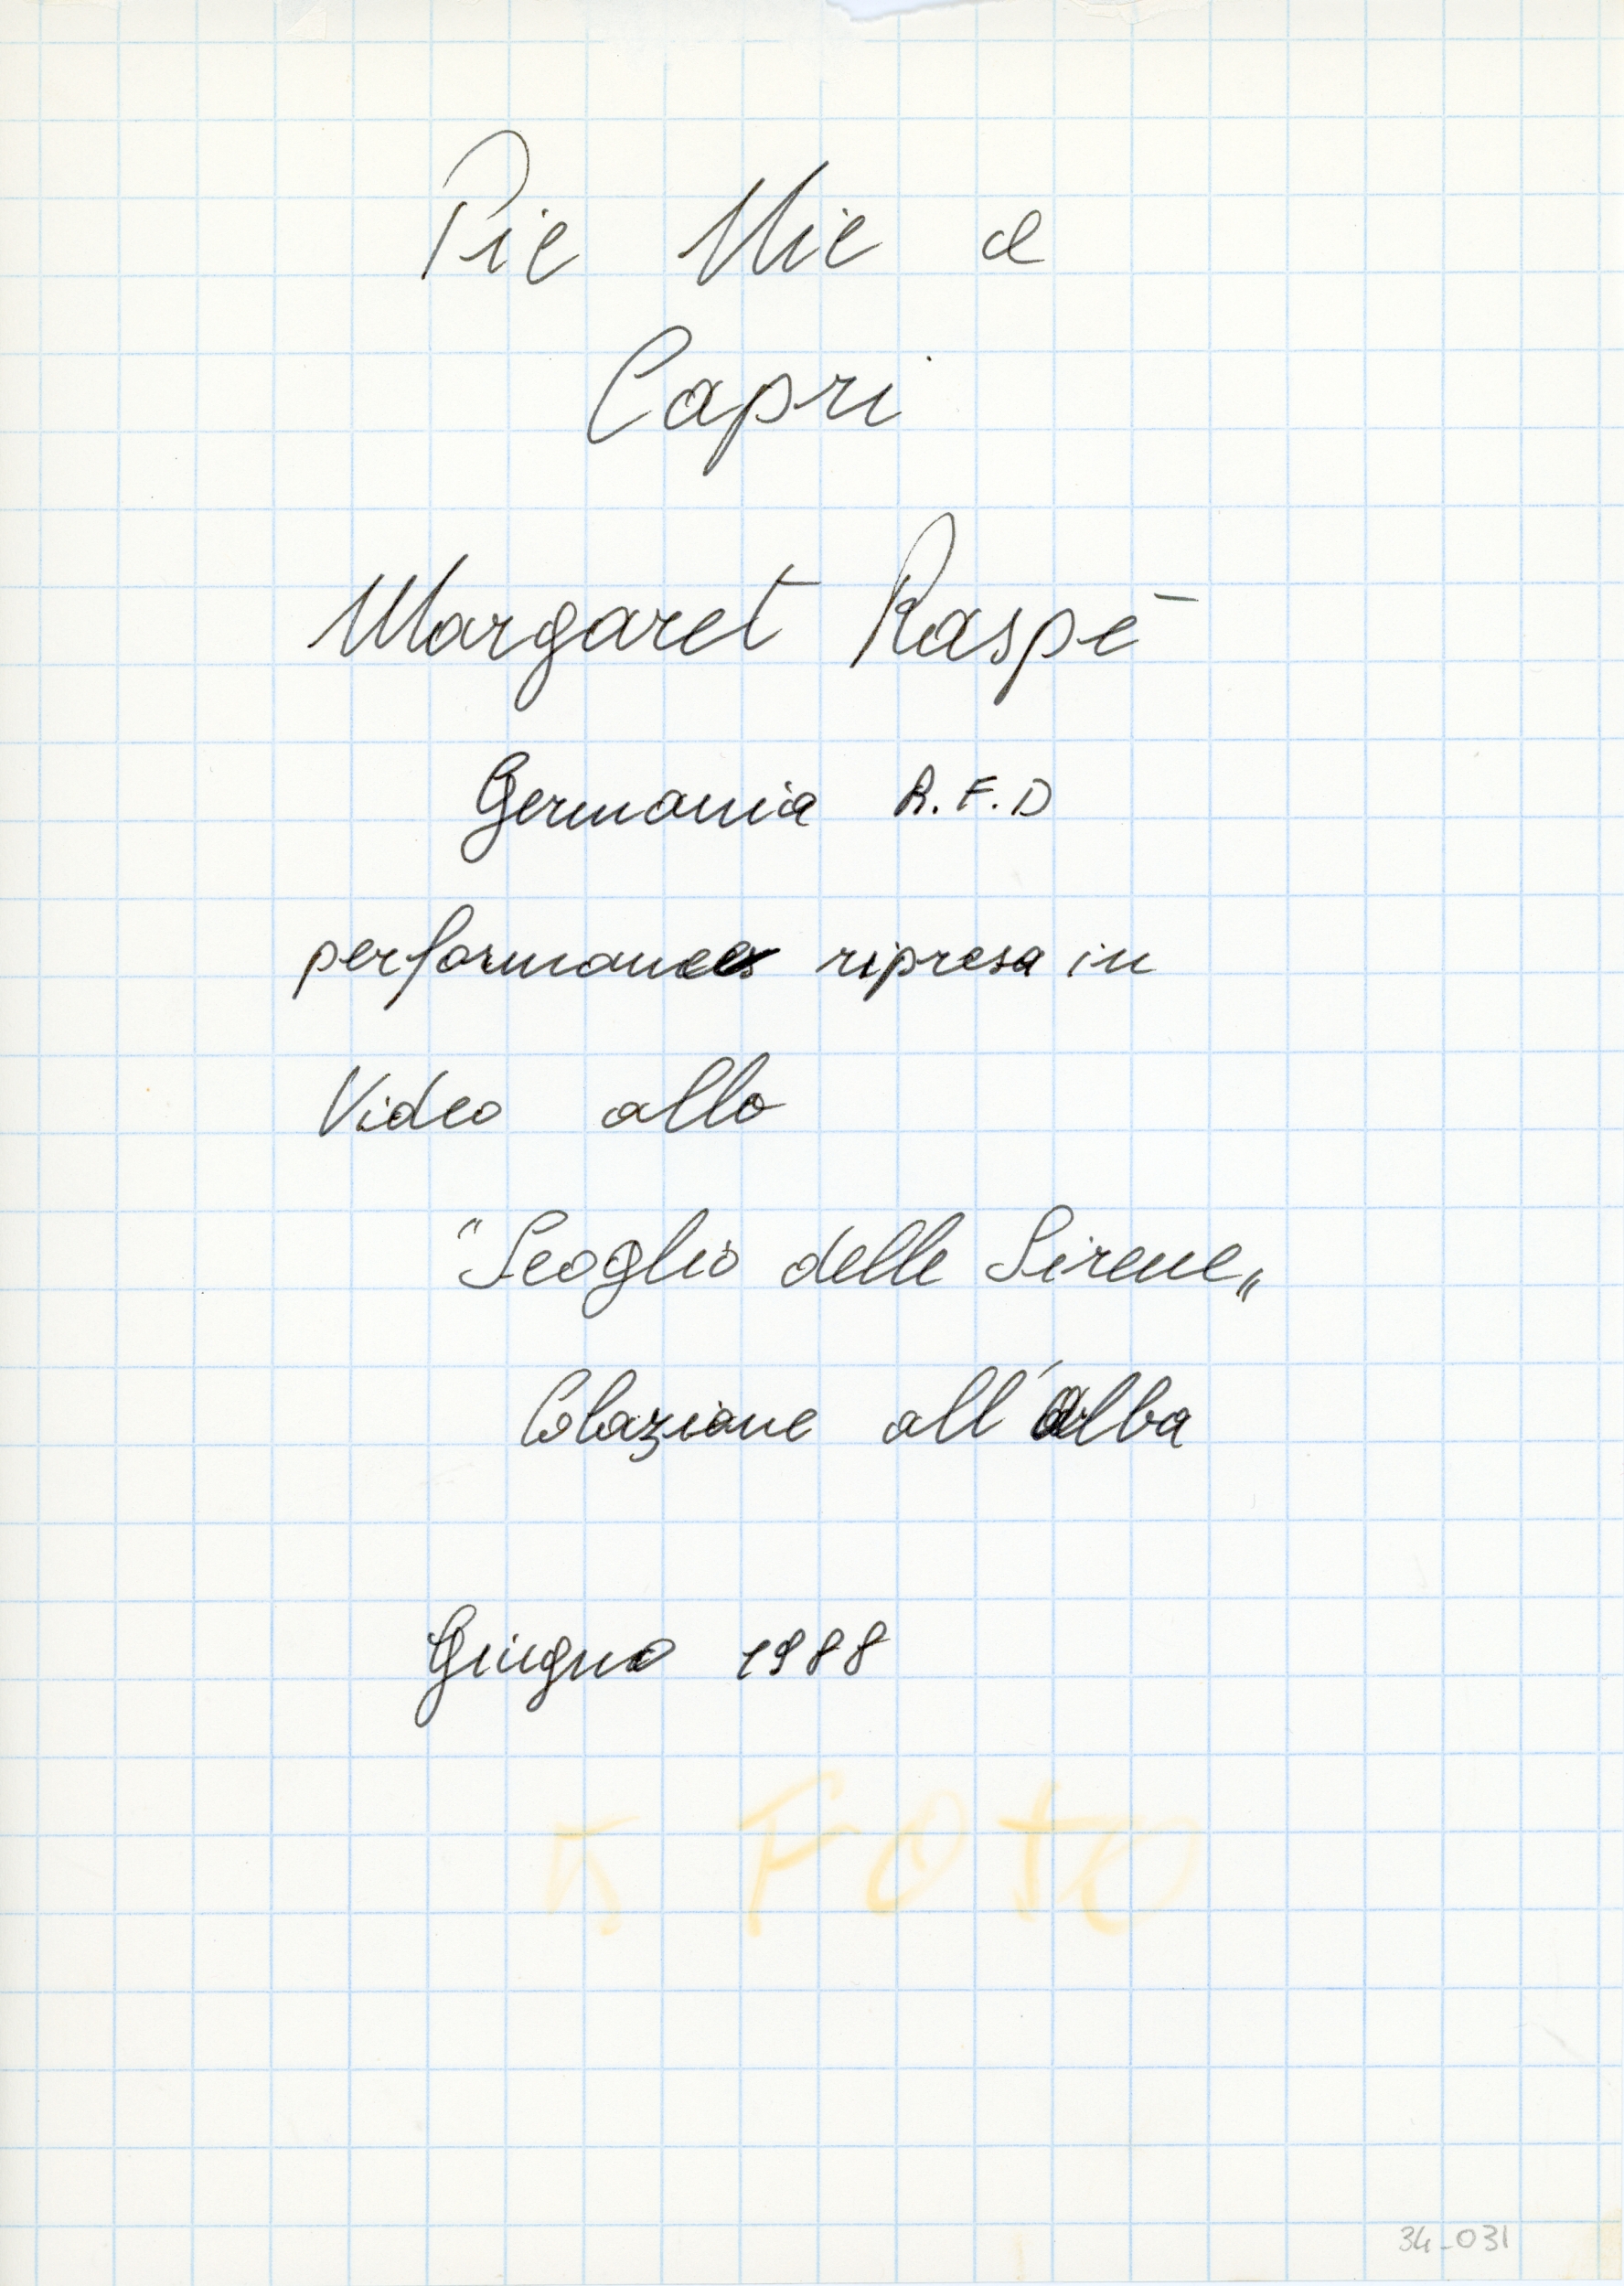 Pic Nic a
Capri
Margaret Raspé
Germania R.F.D
performance ripresa in
Video allo
"Scoglio delle Sirene„
Colazione all'alba
Giugno 1988
5 FOTO
34_031